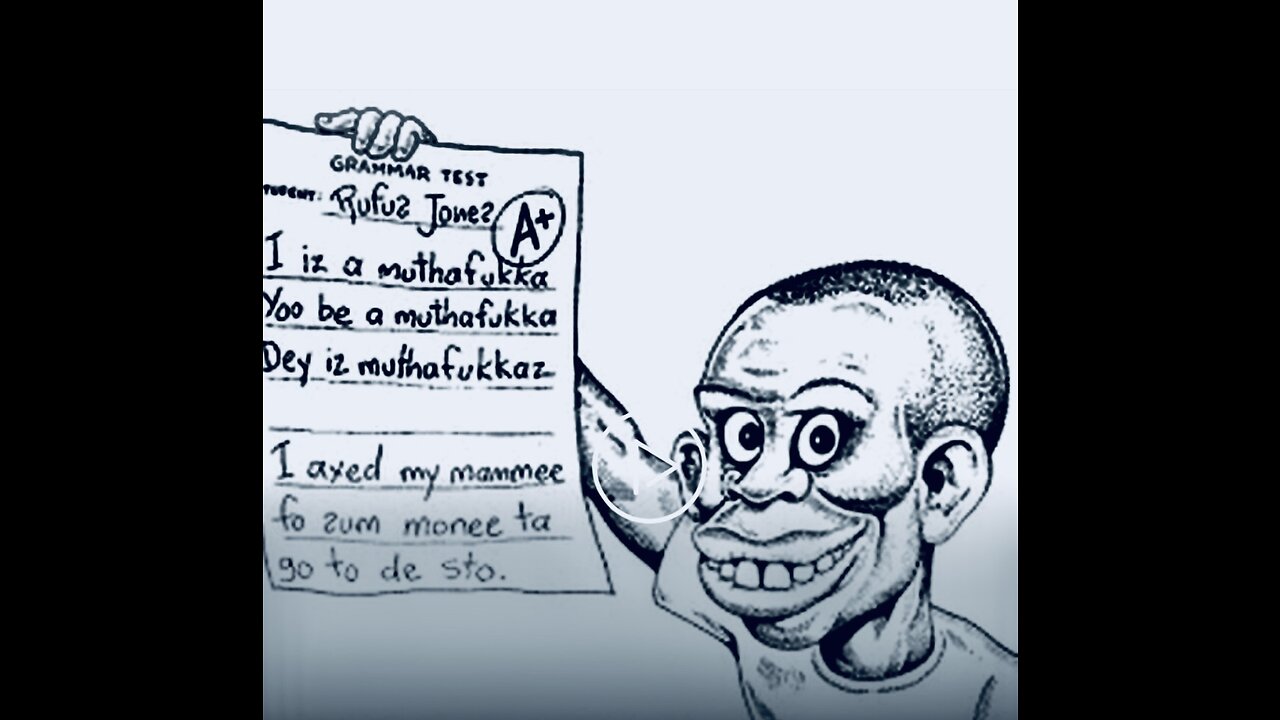 GRAMMAR TEST
Rufus Jones
A+
I iz a muthafukka
Yoo be a muthafukka
Dey iz muthafukkaz
I axed my mammee
fo zum monee ta
go to de sto.